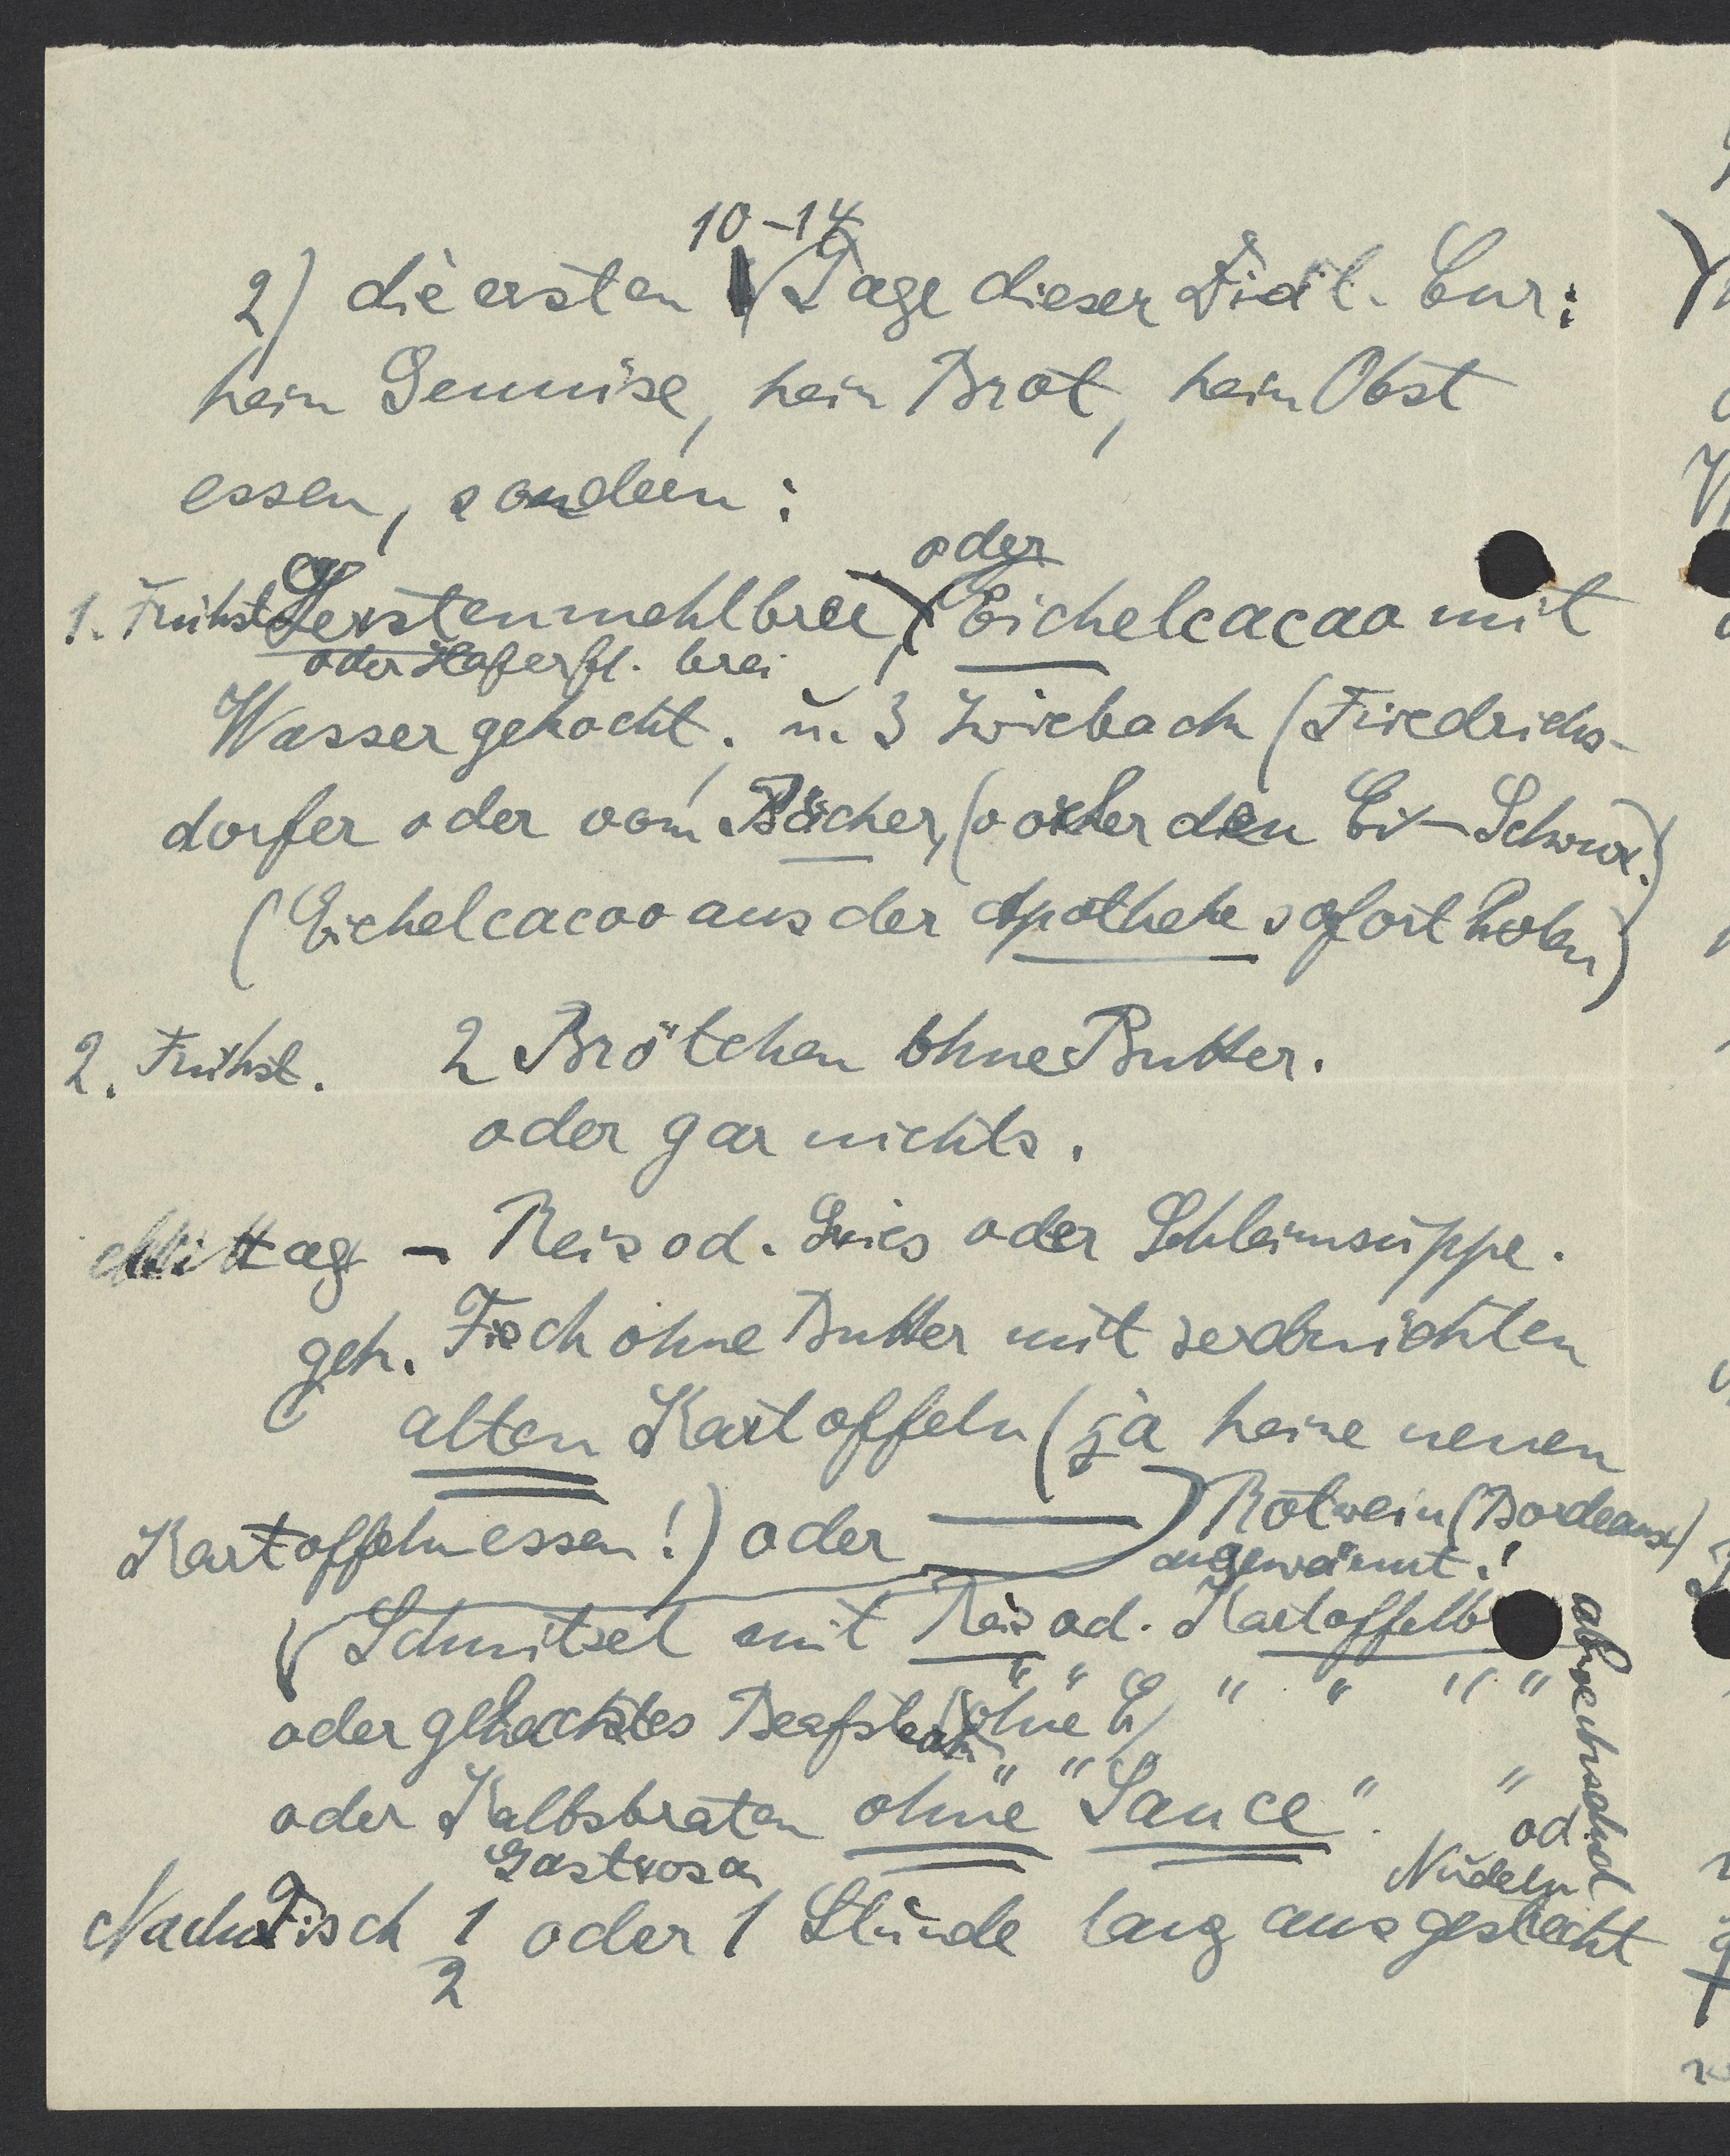 10–14
2) die ersten Tage dieser Diät. Cur:
kein Gemüse, kein Brot, kein Obst
essen, sondern:
oder
1. Frühst. Gerstenmehlbrei, Eichelcacao mit
oder Haferfl. brei
Wasser gekocht. u. 3 Zwieback (Friedrichs-
dorfer oder vom Bäcker, (oder den Ei-
(Eichelcacao aus der Apotheke sofort holen)
2. Frühst. 2 Brötchen ohne Butter.
oder gar nichts.
Mittag – Reis od. Gries oder Schleimsuppe.
gek. Fisch ohne Butter mit zerdrückten
alten Kartoffeln (ja keine neuen
Kartoffeln essen!) oder Rotwein (Bordeaux)
angewärmt!
Schnitzel mit Reis od. Kartoffelb
" " " " " "
oder gehacktes Beafsteak (ohne Ei)
" " " "
oder Kalbsbraten ohne Sauce.
od.
Nudeln
abwechselnd
Gastrosan
Nach Tisch 1/2 oder 1 Stunde lang ausgestreckt